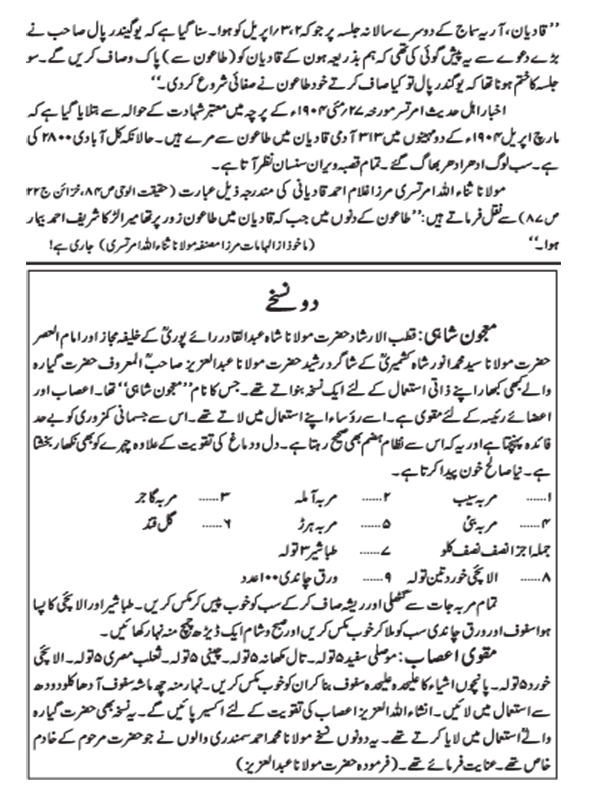 ’’قادیان، آریہ سماج کے دوسرے سالانہ جلسہ پر جو کہ ۲،۳؍اپریل کو ہوا۔ سنا گیا ہے کہ یوگندر پال صاحب نے
بڑے دعوے سے یہ پیش گوئی کی تھی کہ ہم بذریعہ ہون کے قادیان کو (طاعون سے) پاک وصاف کریں گے۔ سو
جلسہ کا ختم ہونا تھا کہ یوگندر پال تو کیا صاف کرتے خود طاعون نے صفائی شروع کردی۔‘‘
اخبار اہل حدیث امرتسر مورخہ ۲۷؍مئی ۱۹۰۴ء کے پرچہ میں معتبر شہادت کے حوالہ سے بتلایا گیا ہے کہ
مارچ اپریل ۱۹۰۴ء کے دو مہینوں میں ۳۱۳ آدمی قادیان میں طاعون سے مرے ہیں۔ حالانکہ کل آبادی ۲۸۰۰ کی
ہے۔ سب لوگ ادھر ادھر بھاگ گئے۔ تمام قصبہ ویران سنسان نظر آتا ہے۔
مولانا ثناء اللہ امرتسری مرزا غلام احمد قادیانی کی مندرجہ ذیل عبارت (حقیقت الوحی ص۸۴، خزائن ج۲۲
ص۸۷) سے نقل فرماتے ہیں: ’’طاعون کے دنوں میں جب کہ قادیان میں طاعون زور پر تھا میرا لڑکا شریف احمد بیمار
ہوا۔‘‘ (ماخوذ از الہامات مرزا مصنفہ مولانا ثناء اللہ امرتسری) جاری ہے!
دو نسخے
معجون شاہی: قطب الارشاد حضرت مولانا شاہ عبدالقادر رائے پوریؒ کے خلیفہ مجاز اور امام العصر
حضرت مولانا سید محمد انور شاہ کشمیریؒ کے شاگرد رشید حضرت مولانا عبدالعزیز صاحبؒ المعروف حضرت گیارہ
والے کبھی کبھار اپنے ذاتی استعمال کے لئے ایک نسخہ بنواتے تھے۔ جس کا نام ’’معجون شاہی‘‘ تھا۔ اعصاب اور
اعضائے رئیسہ کے لئے مقوی ہے۔ اسے رؤساء اپنے استعمال میں لاتے تھے۔ اس سے جسمانی کمزوری کو بے حد
فائدہ پہنچتا ہے اور یہ کہ اس سے نظام ہضم بھی صحیح رہتا ہے۔ دل ودماغ کی تقویت کے علاوہ چہرے کو بھی نکھار بخشتا
ہے۔ نیا صالح خون پیدا کرتا ہے۔
۱...... مربہ سیب ۲...... مربہ آملہ ۳...... مربہ گاجر
۴...... مربہ بہی ۵...... مربہ ہرڑ ۶...... گل قند
جملہ اجزا نصف نصف کلو ۷...... طباشیر ۳ تولہ
۸...... الائچی خورد تین تولہ ۹...... ورق چاندی ۱۰۰ عدد
تمام مربہ جات سے گٹھلی اور ریشہ صاف کر کے سب کو خوب پیس کر مکس کریں۔ طباشیر اور الائچی کا پسا
ہوا سفوف اور ورق چاندی سب کو ملا کر خوب مکس کریں اور صبح وشام ایک ڈیڑھ چمچ منہ نہار کھائیں۔
مقوی اعصاب: موصلی سفید ۵ تولہ۔ تال مکھانہ ۵ تولہ۔ چینی ۵ تولہ۔ ثعلب مصری ۵ تولہ۔ الائچی
خورد ۵ تولہ۔ پانچوں اشیاء کا علیحدہ علیحدہ سفوف بنا کر ان کو خوب مکس کریں۔ نہار منہ چھ ماشہ سفوف آدھا کلو دودھ
سے استعمال میں لائیں۔ انشاء اللہ العزیز اعصاب کی تقویت کے لئے اکسیر پائیں گے۔ یہ نسخہ بھی حضرت گیارہ
والےؒ استعمال میں لایا کرتے تھے۔ یہ دونوں نسخے مولانا محمد احمد سمندری والوں نے جو حضرت مرحوم کے خادم
خاص تھے۔ عنایت فرمائے تھے۔ (فرمودہ حضرت مولانا عبدالعزیز)